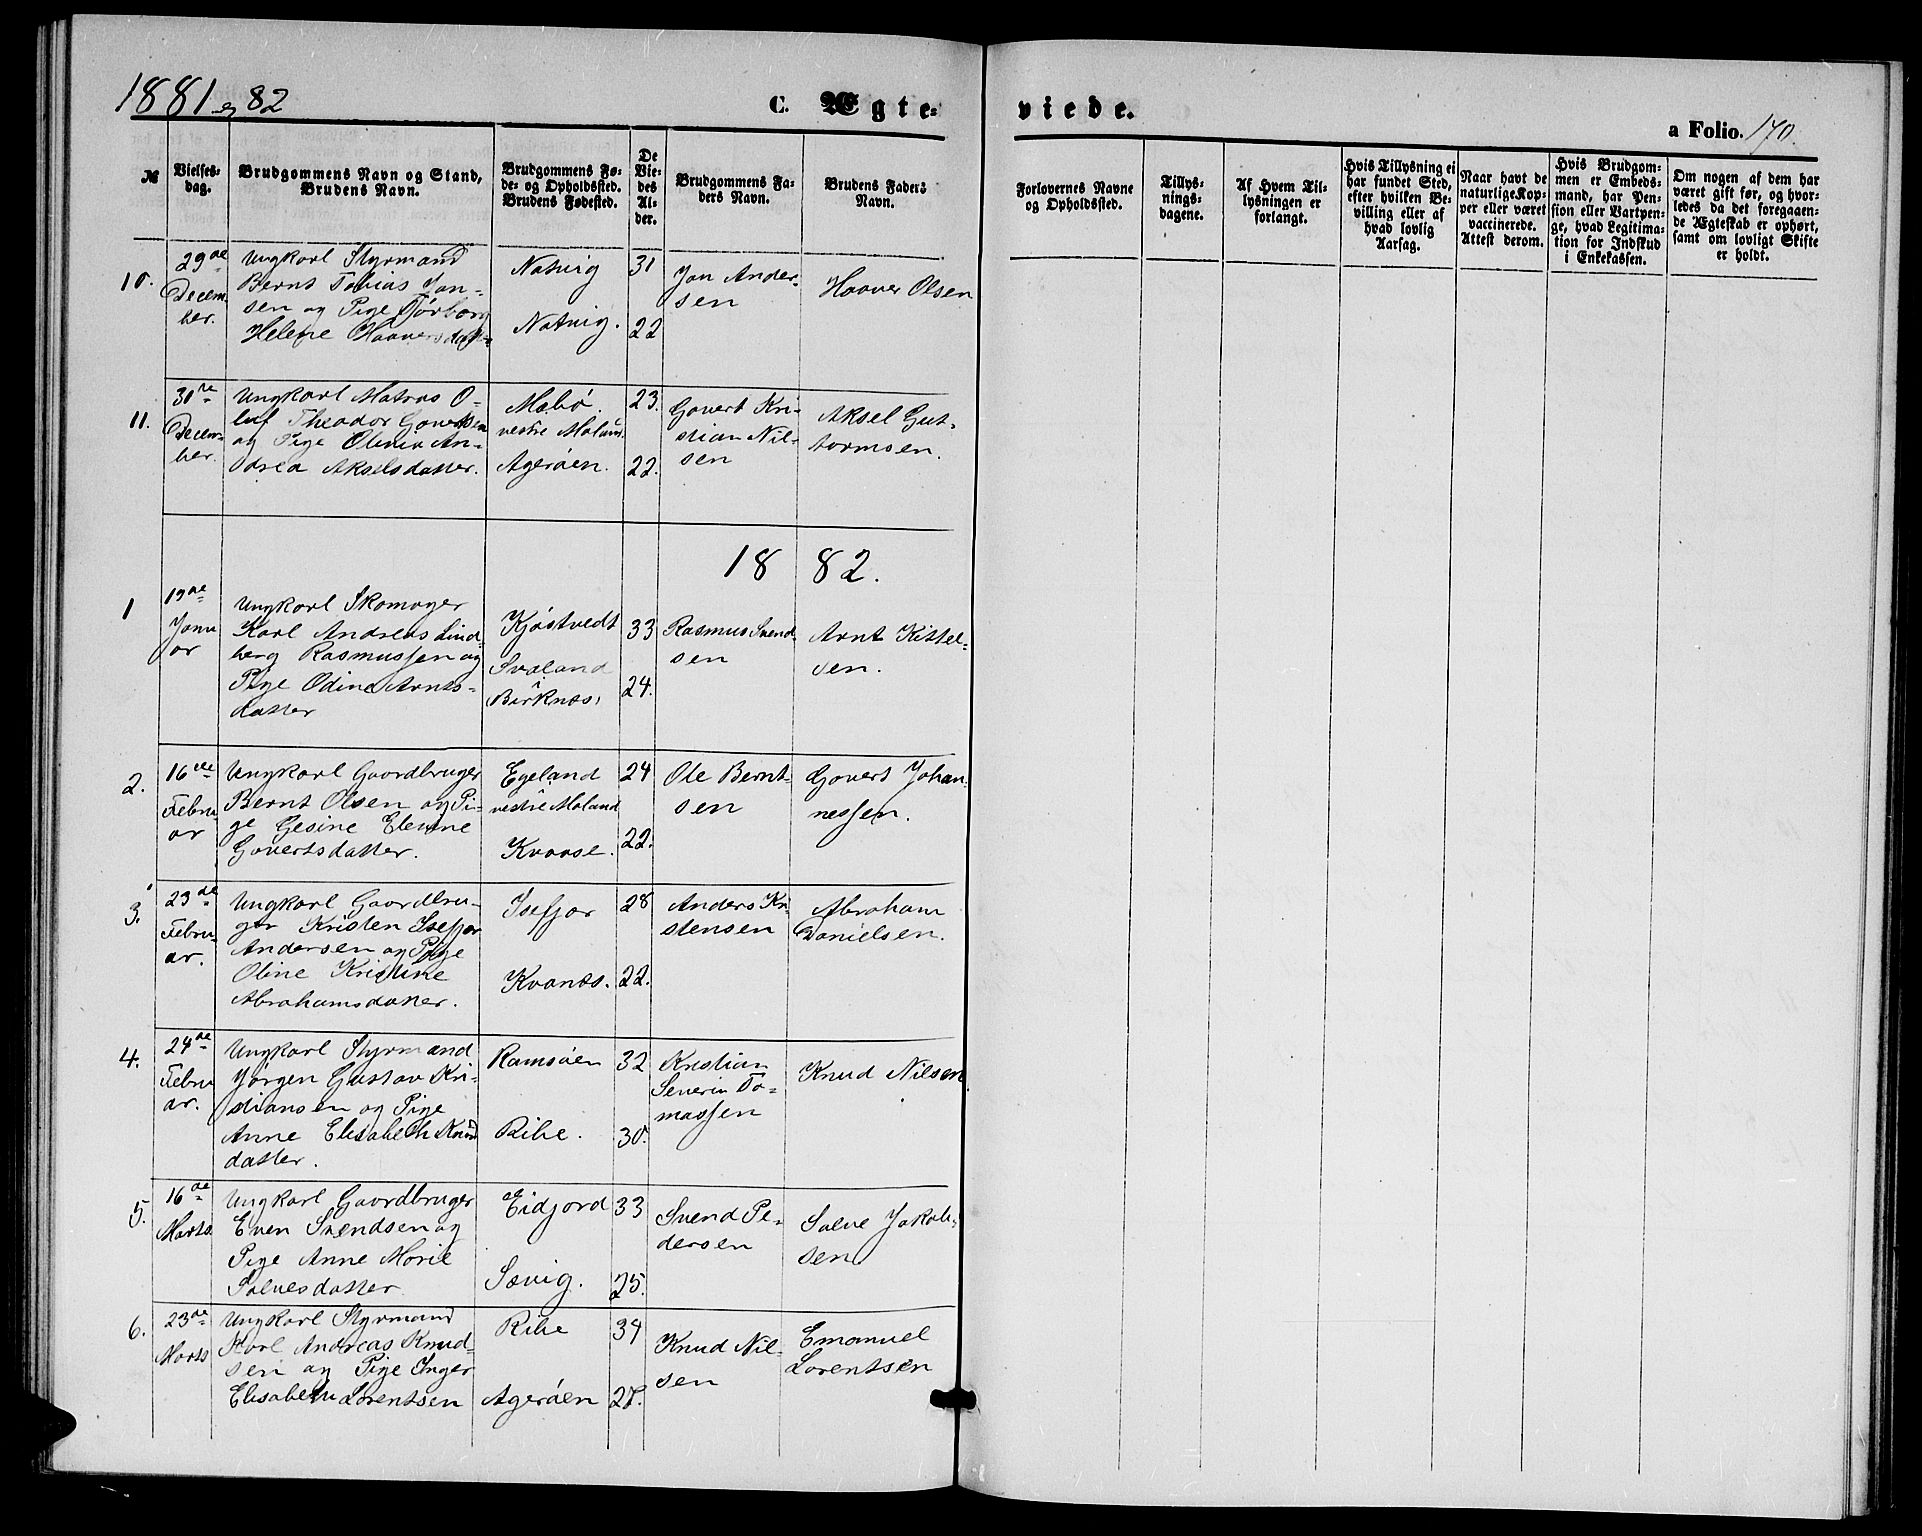 1881 og 82
C. Ægte-
viede.
a Folio. 170.
№
Vielses-
dag.
Brudgommens Navn og Stand,
Brudens Navn.
Brudgommens Fø-
de- og Opholdssted.
Brudens Fødested.
De
Vie-
des
Al-
der.
Brudgommens Fa-
ders Navn.
Brudens Faders
Navn.
Forlovernes Navne
og Opholdssted.
Tillys-
nings-
dagene.
Af Hvem Til-
lysningen er
forlangt.
Hvis Tillysning ei
har fundet Sted,
efter hvilken Be-
villing eller af
hvad lovlig
Aarsag.
Naar havt de
naturlige Kop-
per eller været
vaccinerede.
Attest derom.
Hvis Brudgom-
men er Embeds-
mand, har Pen-
sion eller Vartpen-
ge, hvad Legitima-
tion for Indskud
i Enkekassen.
Om nogen af dem har
været gift før, og hvor-
ledes da det foregaaen-
de Ægteskab er ophørt,
samt om lovligt Skifte
er holdt.
10.
29de
Decem
ber.
Ungkarl Styrmand
Bernt Tobias Jan-
sen og Pige Torborg
Helene Haaversdatter
Natvig
Natvig.
31
22
Jan Ander-
sen
Haaver Olsen
11.
31te
Decem-
ber.
Ungkarl Matros O-
luf Theodor Govertsen
og Pige Olivia An-
drea Akselsdatter.
Mæbø.
vestre Moland.
Agerøen.
23.
22.
Govert Kri-
stian Nil-
sen
Aksel Gut-
tormsen.
1882.
1
19de
Janu
ar
Ungkarl Skomager
Karl Andreas Lind
berg Rasmussen og
Pige Odine Arnts-
datter
Kjøstvedt
Svaland
Birknæs,
33
24.
Rasmus Svend-
sen
Arnt Kittel-
sen.
2.
16de
Febru
ar
Ungkarl Gaardbruger
Bernt Olsen og Pi-
ge Gesine Elevine
Govertsdatter.
Egeland
vestre Moland
Kvaase.
24
22.
Ole Bernt-
sen
Govert Johan
nessen.
3.
23de
Febru-
ar.
Ungkarl Gaardbru-
ger Kristen Isefjær
Andersen og Pige
Oline Kristine
Abrahamsdatter.
Isefjær
Kvanæs.
28
22.
Anders Kri-
stensen
Abraham
Danielsen.
4.
24de
Febru
ar.
Ungkarl Styrmand
Jørgen Gustav Kri-
stiansen og Pige
Anne Elisabeth Knud
datter.
Ramsøen
Ribe.
32
30.
Kristian
Severin To-
massen
Knud Nilsen
5.
16de
Marts.
Ungkarl Gaardbruger
Even Svendsen og
Pige Anne Marie
Salvesdatter.
Eidjord
Sævig.
33
25.
Svend Pe-
dersen
Salve Jakob-
sen
6.
23de
Marts
Ungkarl Styrmand
Karl Andreas Knud-
sen og Pige Inger
Elisabeth Lorentsen
Ribe
Agerøen
34
27.
Knud Nil-
sen
Emanuel
Lorentsen